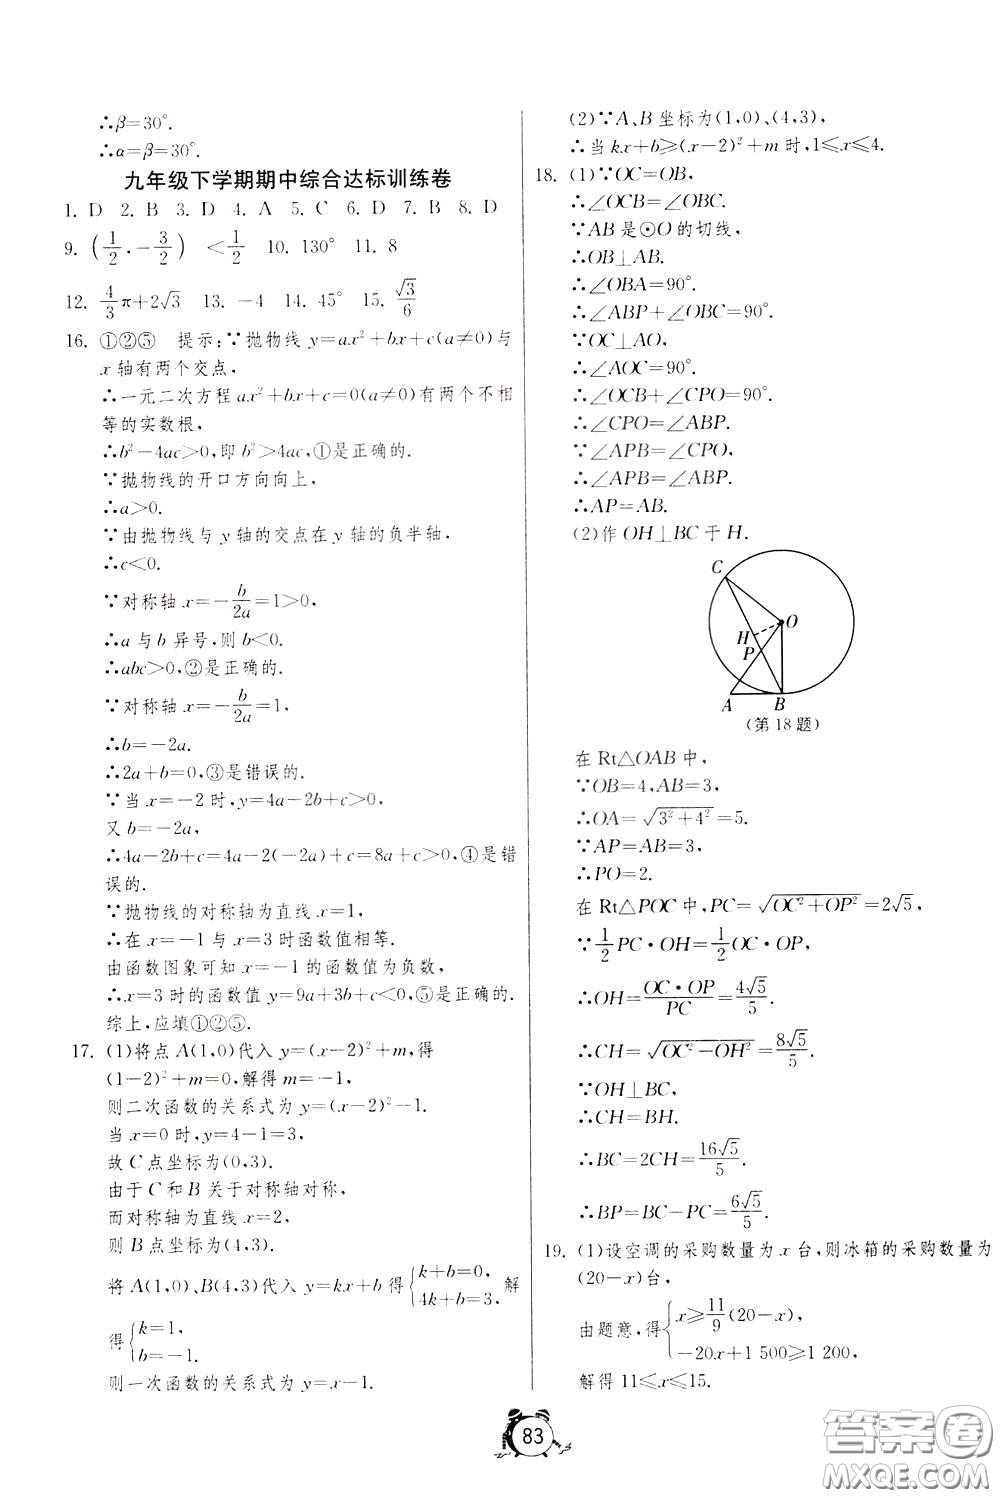 ∴β=30°.
∴α=β=30°.
九年级下学期期中综合达标训练卷
1. D 2. B 3. D 4. A 5. C 6. D 7. B 8. D
9. (1/2, -3/2) <1/2 10. 130° 11. 8
12. 4/3π+2√3 13. -4 14. 45° 15. √3/6
16. ①②⑤ 提示:∵抛物线 y=ax²+bx+c(a≠0)与
x 轴有两个交点,
∴一元二次方程 ax²+bx+c=0(a≠0)有两个不相
等的实数根,
∴b²-4ac>0,即 b²>4ac,①是正确的.
∵抛物线的开口方向向上,
∴a>0.
∵由抛物线与 y 轴的交点在 y 轴的负半轴,
∴c<0.
∵对称轴 x=-b/2a=1>0,
∴a 与 b 异号,则 b<0.
∴abc>0,②是正确的.
∵对称轴 x=-b/2a=1,
∴b=-2a.
∴2a+b=0,③是错误的.
∵当 x=-2 时,y=4a-2b+c>0,
又 b=-2a,
∴4a-2b+c=4a-2(-2a)+c=8a+c>0,④是错
误的.
∵抛物线的对称轴为直线 x=1,
∴在 x=-1 与 x=3 时函数值相等.
由函数图象可知 x=-1 的函数值为负数,
∴x=3 时的函数值 y=9a+3b+c<0,⑤是正确的.
综上,应填①②⑤.
17. (1)将点 A(1,0)代入 y=(x-2)²+m,得
(1-2)²+m=0,解得 m=-1.
则二次函数的关系式为 y=(x-2)²-1.
当 x=0 时,y=4-1=3,
故 C 点坐标为(0,3).
由于 C 和 B 关于对称轴对称,
而对称轴为直线 x=2,
则 B 点坐标为(4,3).
将 A(1,0)、B(4,3)代入 y=kx+b 得{k+b=0, 4k+b=3,解
得{k=1, b=-1.
则一次函数的关系式为 y=x-1.
(2)∵A、B 坐标为(1,0)、(4,3),
∴当 kx+b≥(x-2)²+m 时,1≤x≤4.
18. (1)∵OC=OB,
∴∠OCB=∠OBC.
∵AB 是⊙O 的切线,
∴OB⊥AB.
∴∠OBA=90°.
∴∠ABP+∠OBC=90°.
∵OC⊥AO,
∴∠AOC=90°.
∴∠OCB+∠CPO=90°.
∴∠CPO=∠ABP.
∵∠APB=∠CPO,
∴∠APB=∠ABP.
∴AP=AB.
(2)作 OH⊥BC 于 H.
C
O
H
P
A B
(第18题)
在 Rt△OAB 中,
∵OB=4,AB=3,
∴OA=√(3²+4²)=5.
∵AP=AB=3,
∴PO=2.
在 Rt△POC 中,PC=√(OC²+OP²)=2√5,
∵1/2PC·OH=1/2OC·OP,
∴OH=OC·OP/PC=4√5/5.
∴CH=√(OC²-OH²)=8√5/5.
∵OH⊥BC,
∴CH=BH.
∴BC=2CH=16√5/5.
∴BP=BC-PC=6√5/5.
19. (1)设空调的采购数量为 x 台,则冰箱的采购数量为
(20-x)台,
由题意,得{x≥11/9(20-x), -20x+1 500≥1 200,
解得 11≤x≤15.
83
答案卷
MXQE.COM